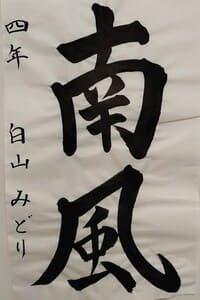 南風
四年 白山みどり